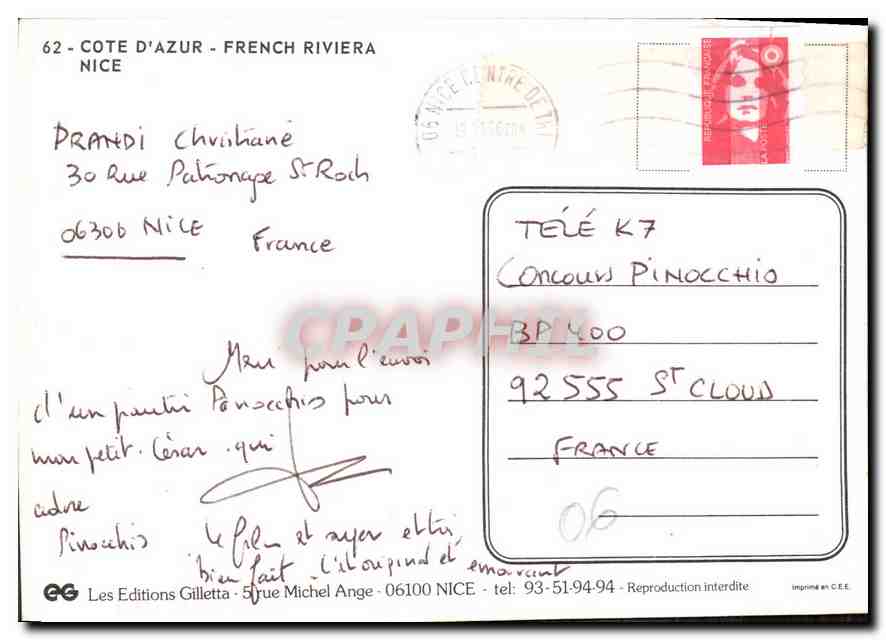 62 - COTE D'AZUR - FRENCH RIVIERA
NICE
06 NICE CENTRE DE TRI
REPUBLIQUE FRANÇAISE
LA POSTE
PRANDI Christiane
30 Rue Patronage St Roch
06300 NICE
France
TÉLÉ K7
CONCOURS PINOCCHIO
BP 400
92 555 ST CLOUD
FRANCE
06
CPAPHIL
Merci pour l'envoi
d'un pantin Pinocchio pour
mon petit César qui
adore
Pinocchio
le film est super
bien fait. c'est original et émouvant
EG Les Editions Gilletta - 5 rue Michel Ange - 06100 NICE - tel: 93-51-94-94 - Reproduction interdite
Imprimé en C.E.E.